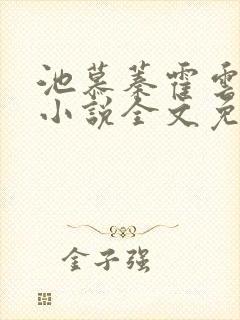 池慕蓁霍雲
小說全文免
金子強